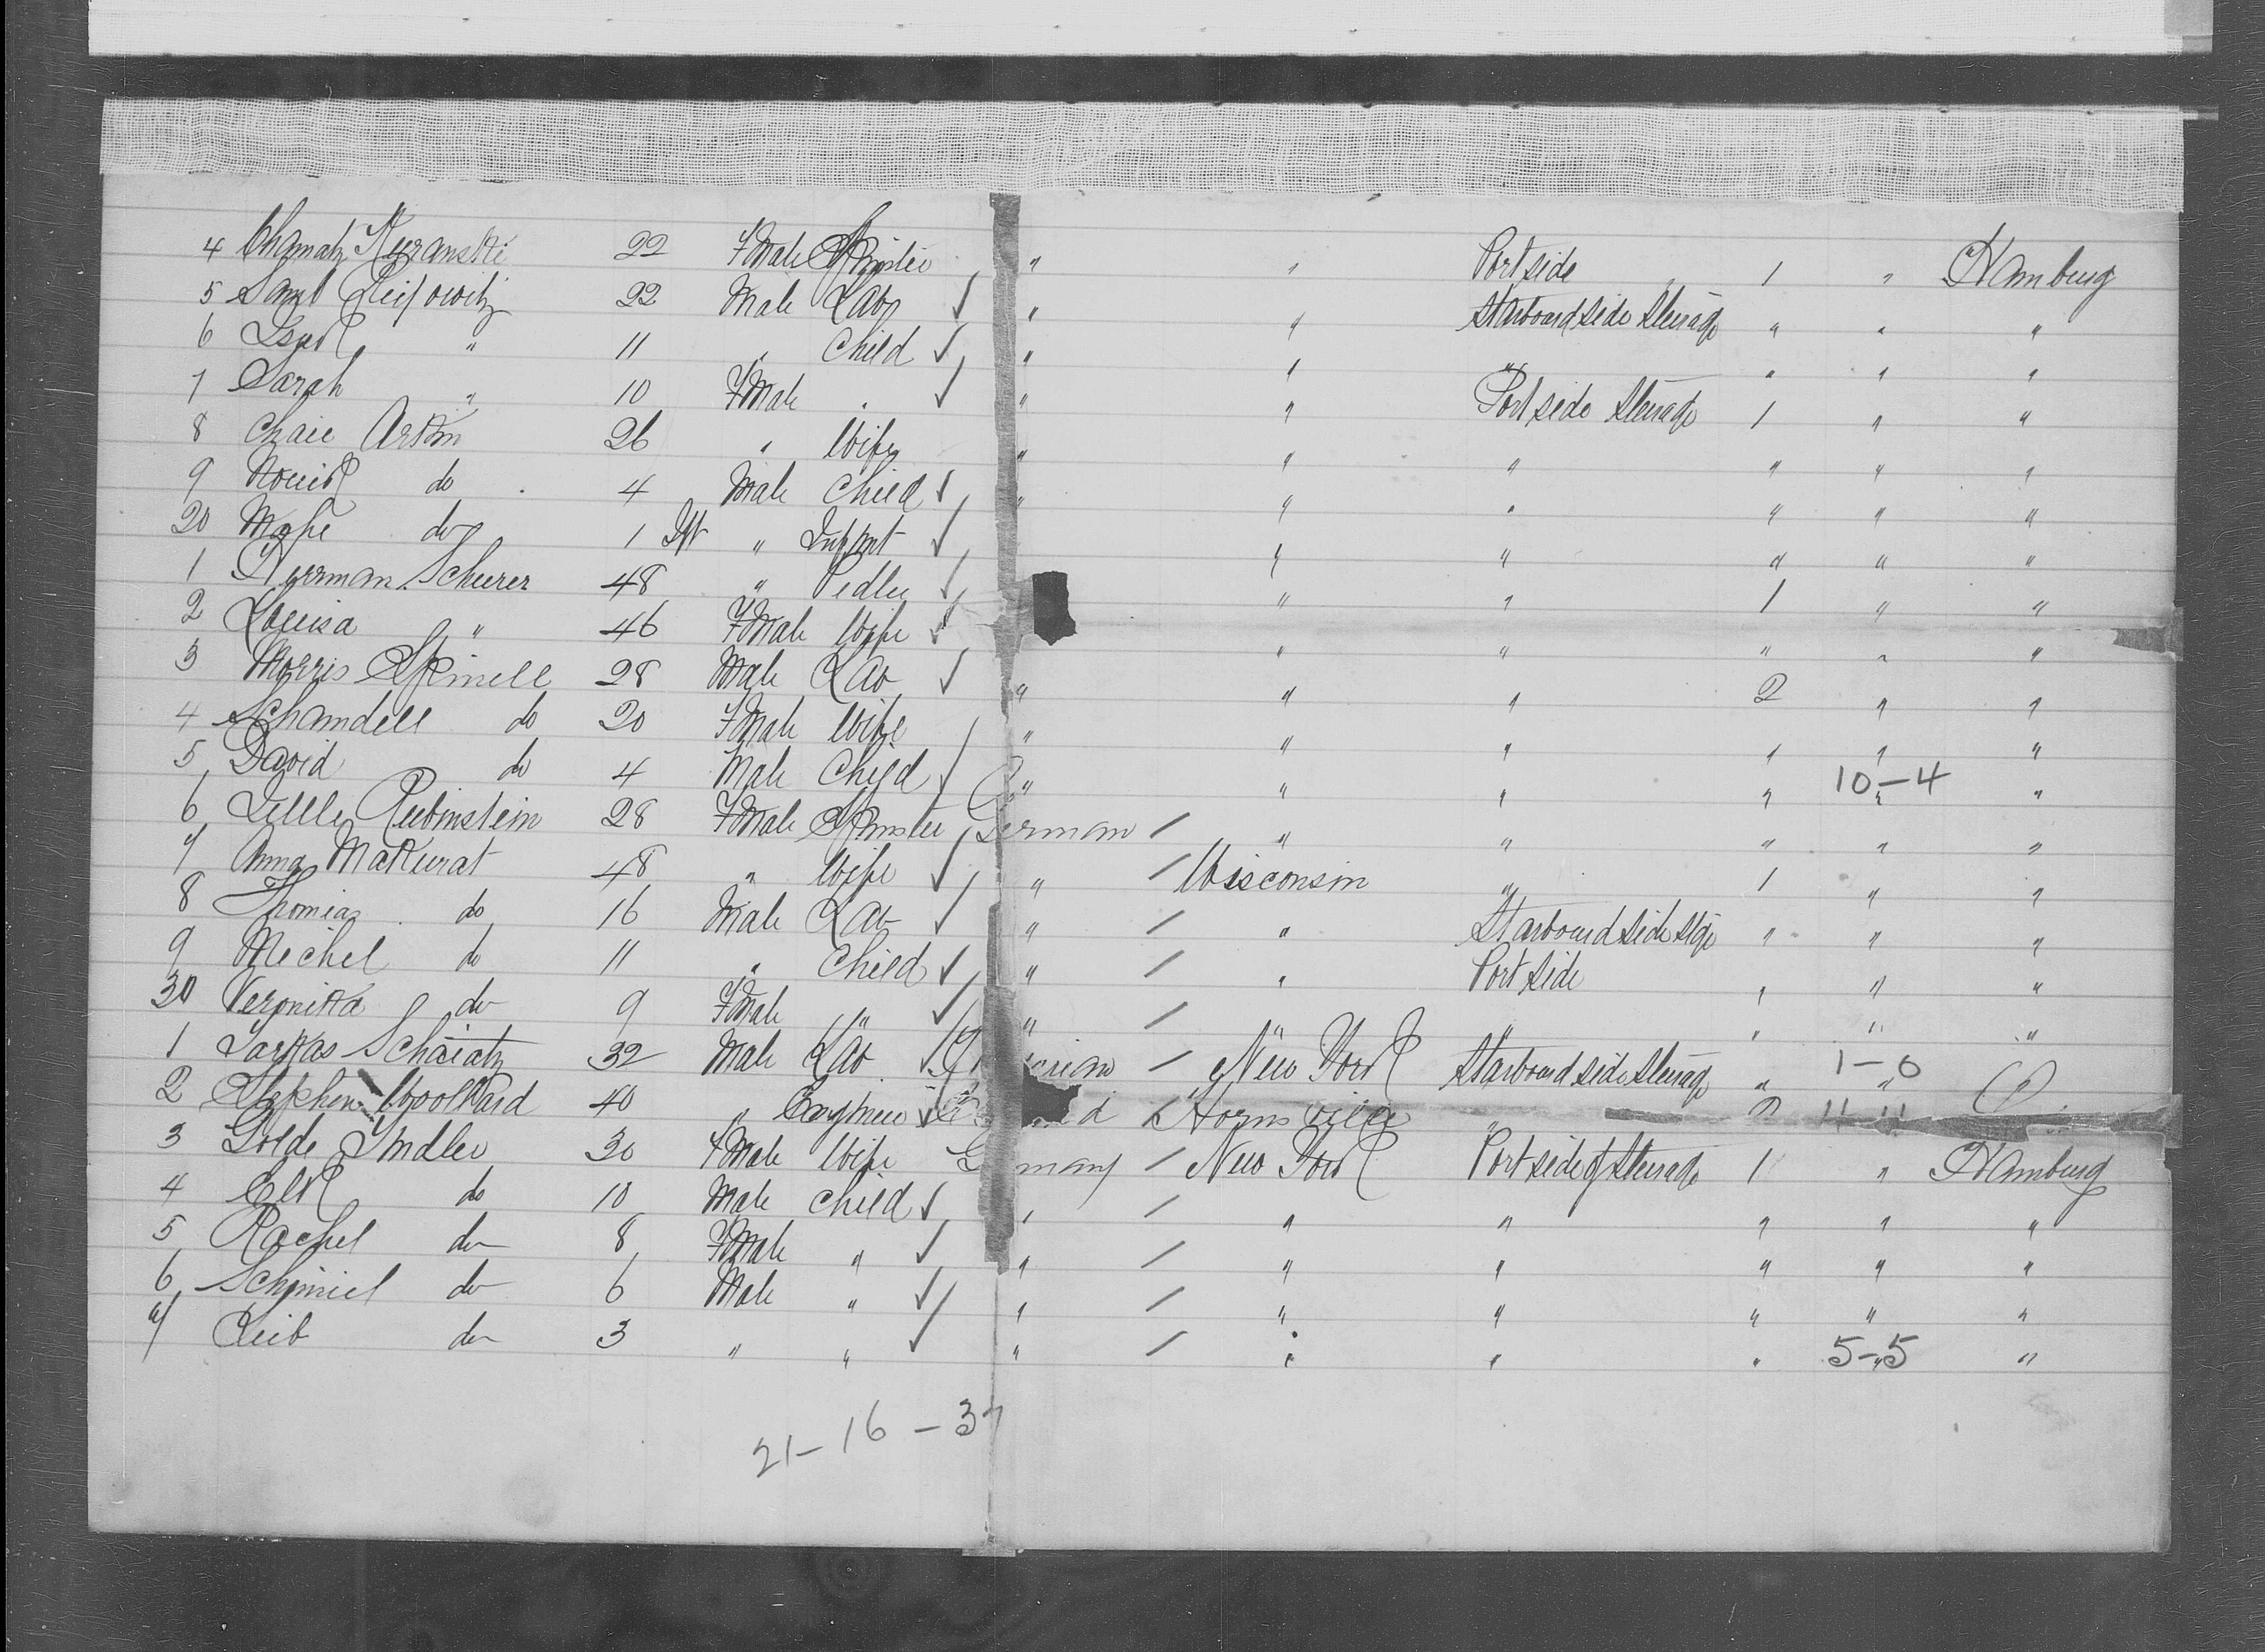 4 Chamatz Kuranski 22 Fmale Spinster " " Port side " 1 " Hamburg
5 Saml Leifowitz 22 Male Lab " " Starboard side Steerage " " "
6 " 11 " Child " " " " " "
7 Sarah " 10 Fmale " " " Port side Steerage 1 " "
8 Chaie Arkin 26 " Wife " " " " " "
9 do 4 Male Child " " " " " "
20 do 1 " Infant " " " " "
1 Herman Scherer 48 " Pedler " " 1 " "
2 Louisa " 46 Fmale Wife " " " " "
3 Morris Spinell 28 Male Lab " " " 2 " "
4 Schandell do 20 Fmale Wife " " " " " "
5 David do 4 Male Child " " " " 10-4 "
6 Rubinstein 28 Fmale Spinster German / " " " " "
7 Anna Makurat 48 " Wife " / Wisconsin " 1 " "
8 do 16 Male Lab " / " Starboard side Stge " " "
9 Michel do 11 " Child " / " Port side " " "
30 Veronika do 9 Fmale " " / " " " " "
1 32 Male Lab / New York Starboard side Steerage " 1-0
2 Stephen Woolkard 40 " Engineer
3 Golde Indler 30 Fmale Wife Germany / New York Port side of Steerage 1 " Hamburg
4 do 10 Male Child " / " " " " "
5 Rachel do 8 Fmale " " / " " " " "
6 Schmiel do 6 Male " " / " " " " "
7 Leib do 3 " " " / " " " 5-5 "
21-16-37